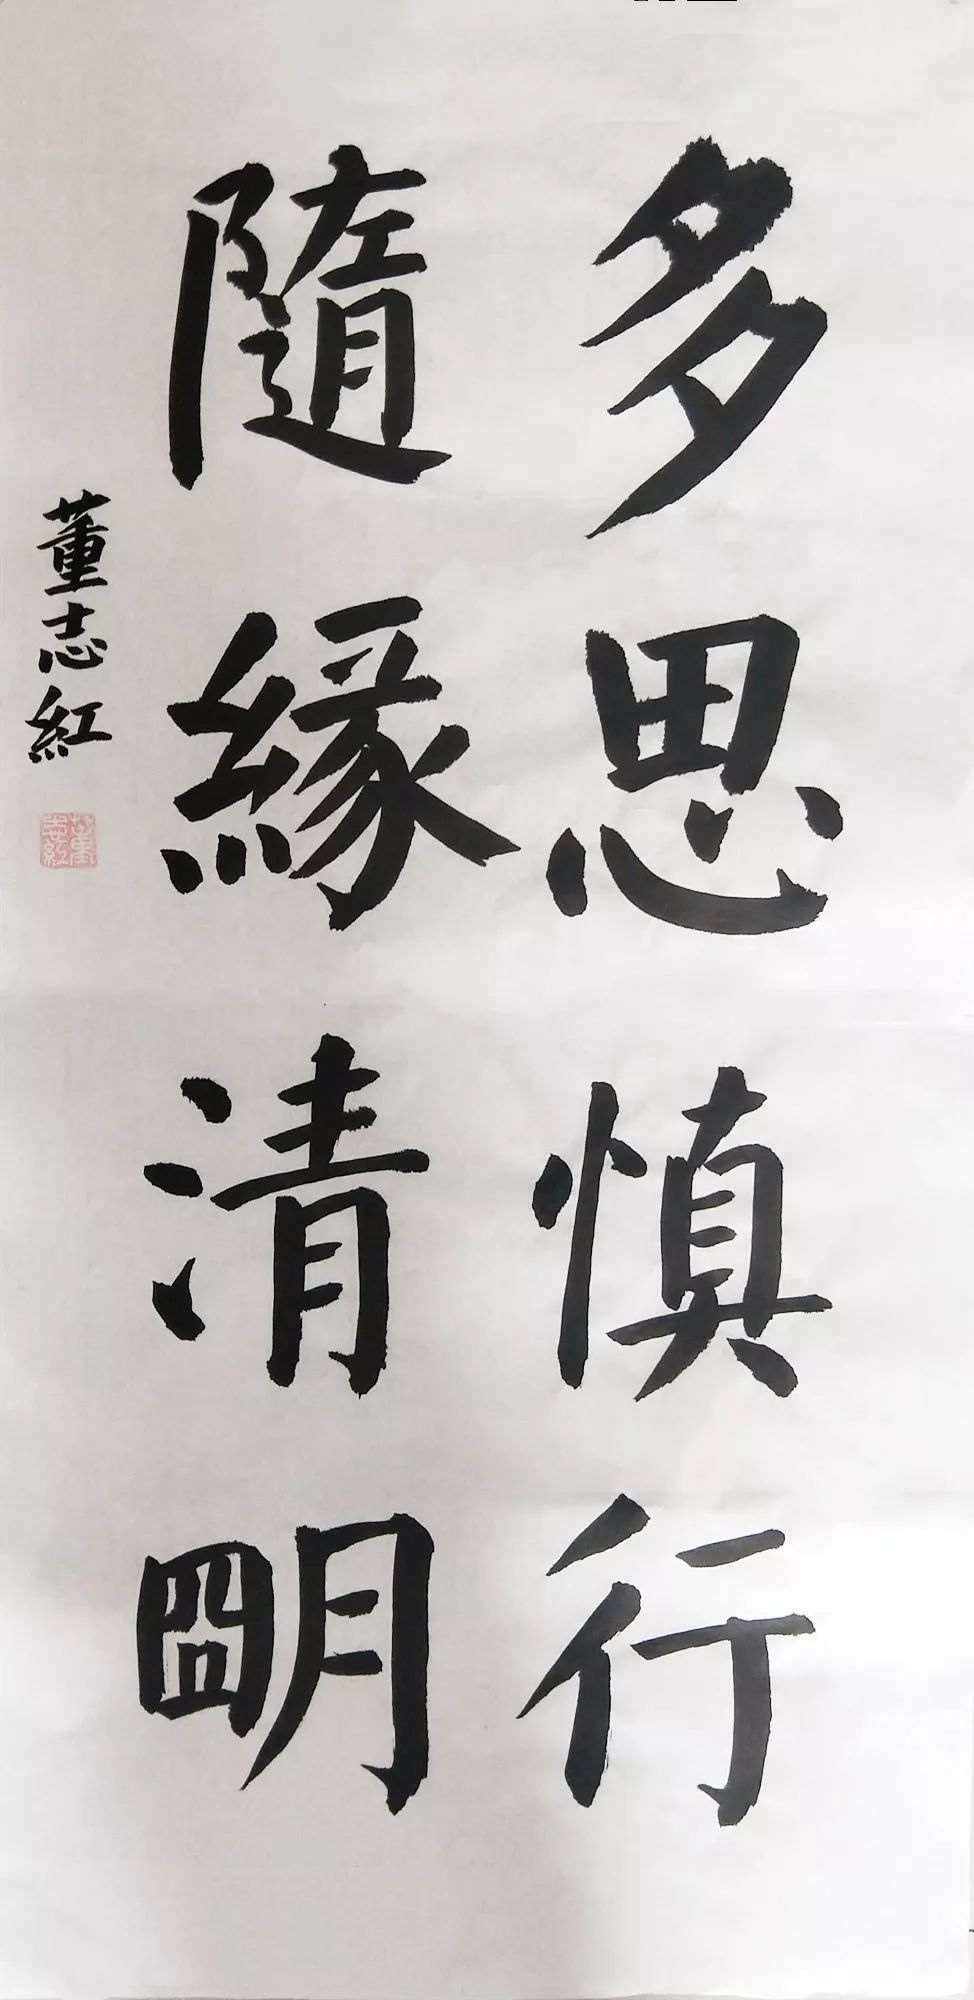 多思慎行
隨緣清朙
董志紅
董志紅